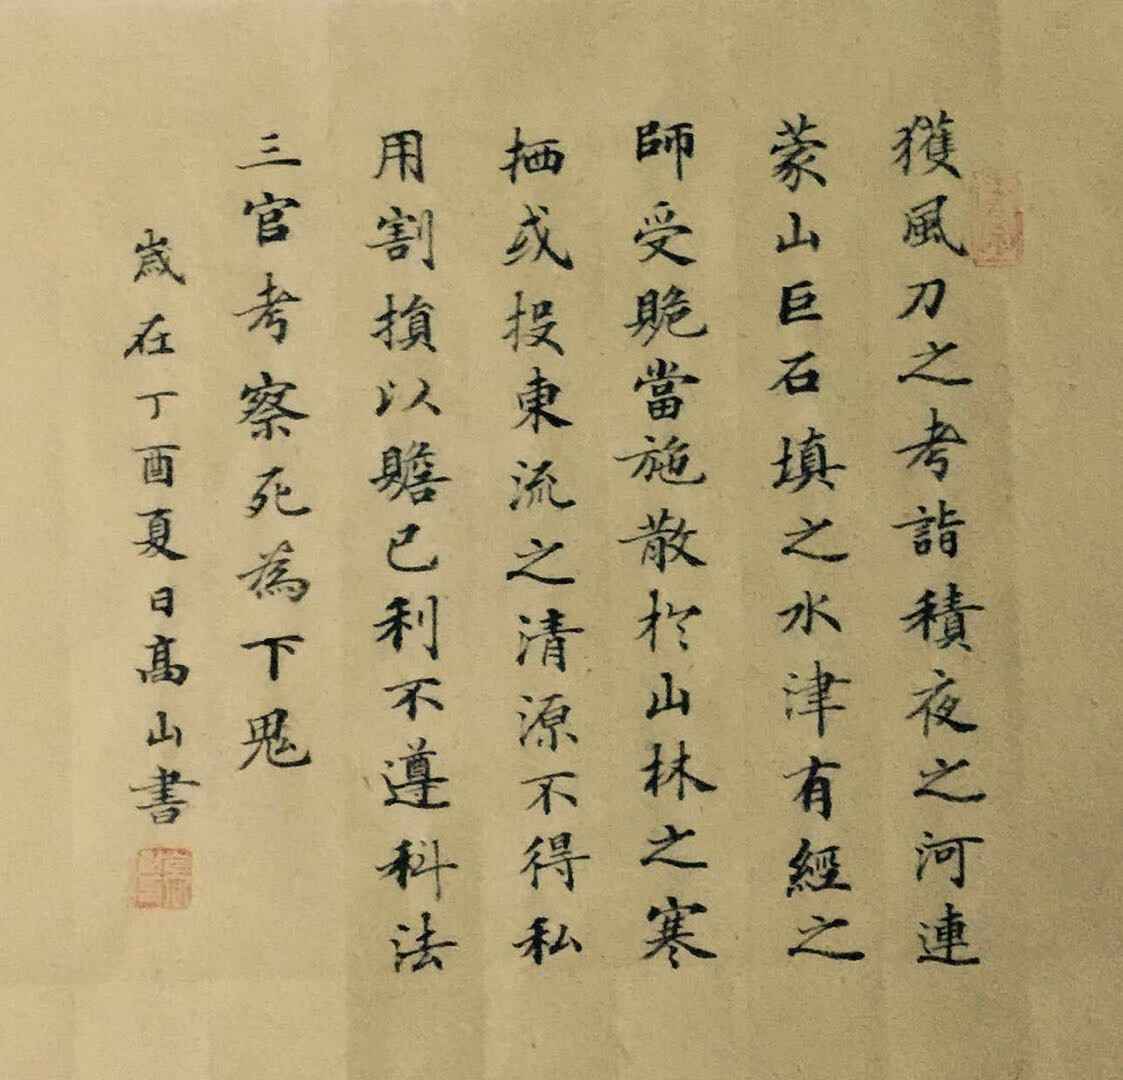 獲風刀之考詣積夜之河連
蒙山巨石填之水津有經之
師受貤當施散於山林之寒
栖或投東流之清源不得私
用割損以贍己利不遵科法
三官考察死為下鬼
歲在丁酉夏日高山書